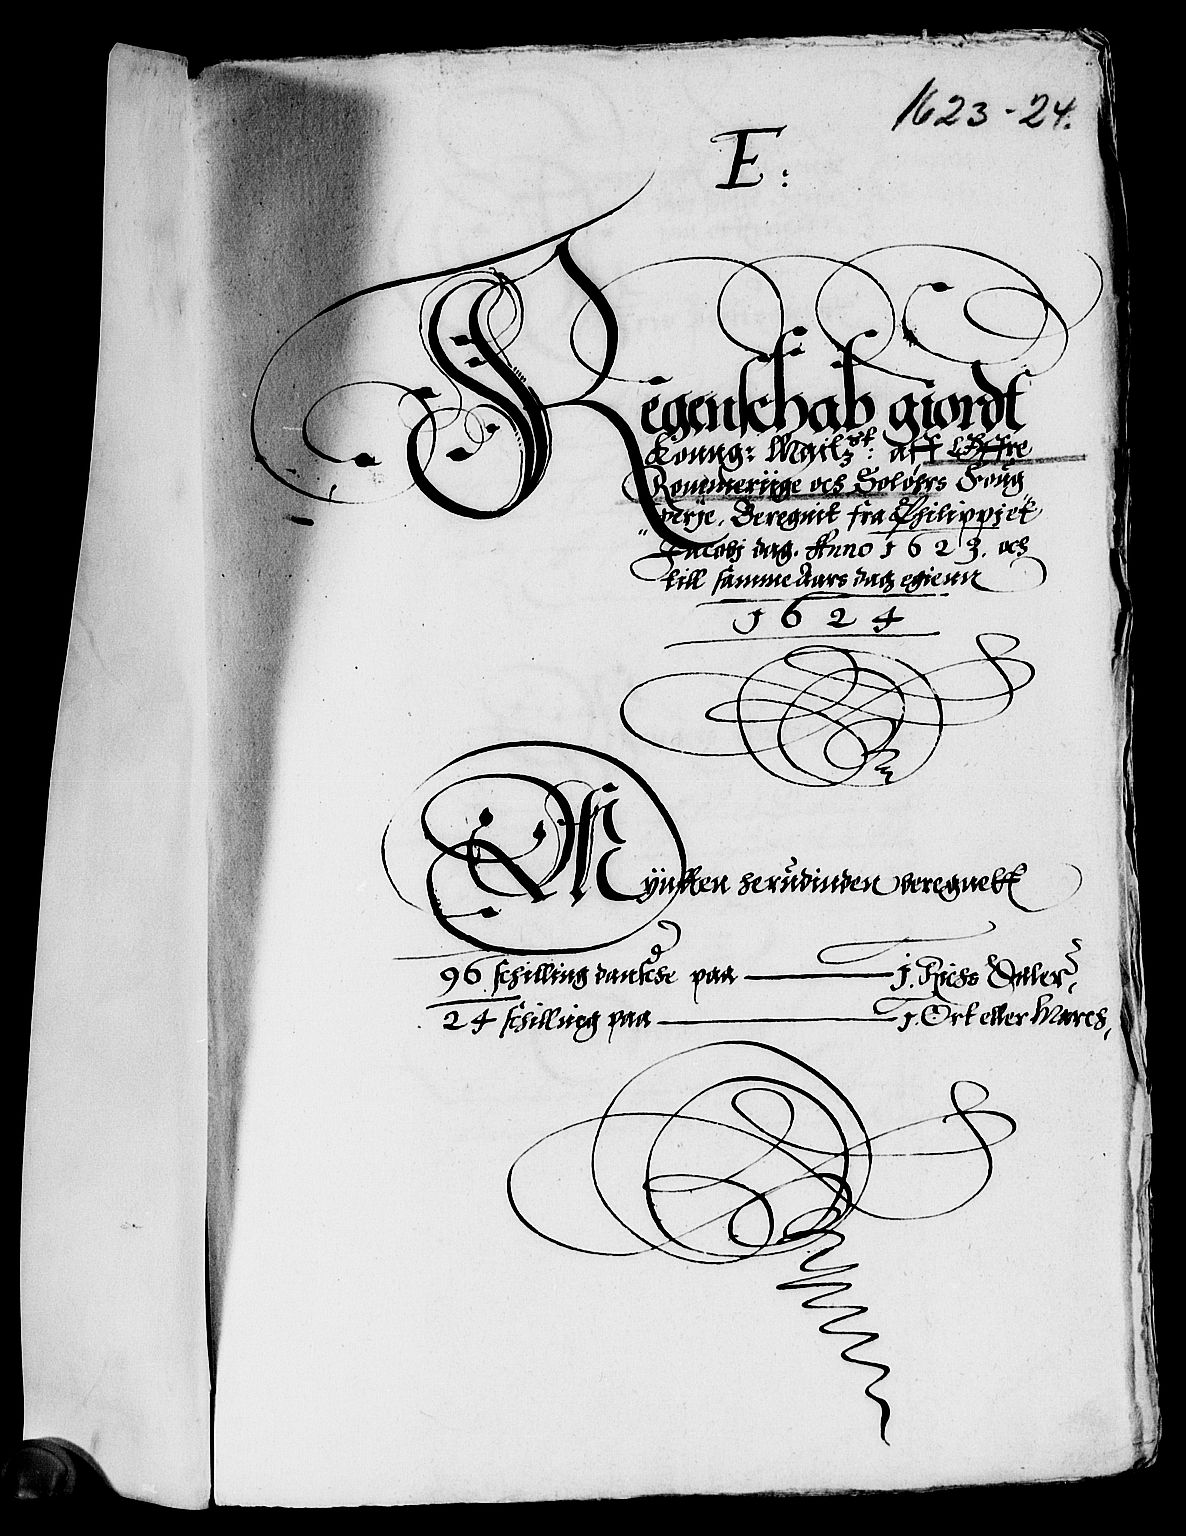 1623-24.
E:
Regenschab giordt
Konng: Maitz st: aff Øffre
Rommeriige och Soløers Foug
derje, Beregnit fra Philippj et
Jacobj dag. Anno 1623. och
till samme Aars dag egienn
1624
Mÿntten herudinden beregnett
96 schilling danske paa — 1. Richs Daler,
24 schilling paa — 1. Ort eller March,